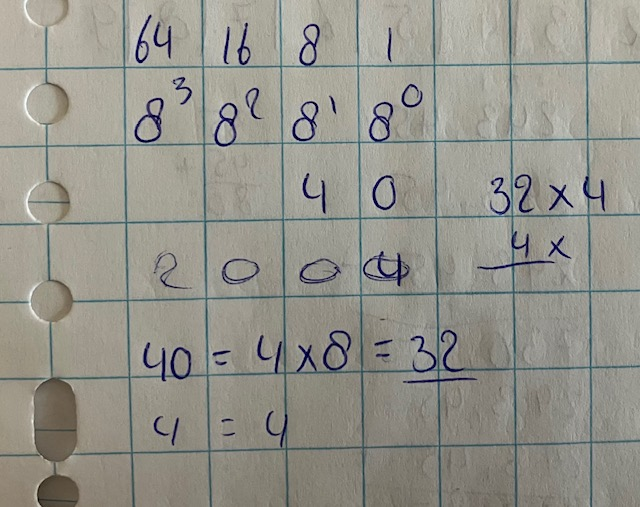 64 16 8 1
8³ 8² 8¹ 8⁰
4 0 32 x 4
2 0 0 4 4 x
40 = 4 x 8 = 32
4 = 4